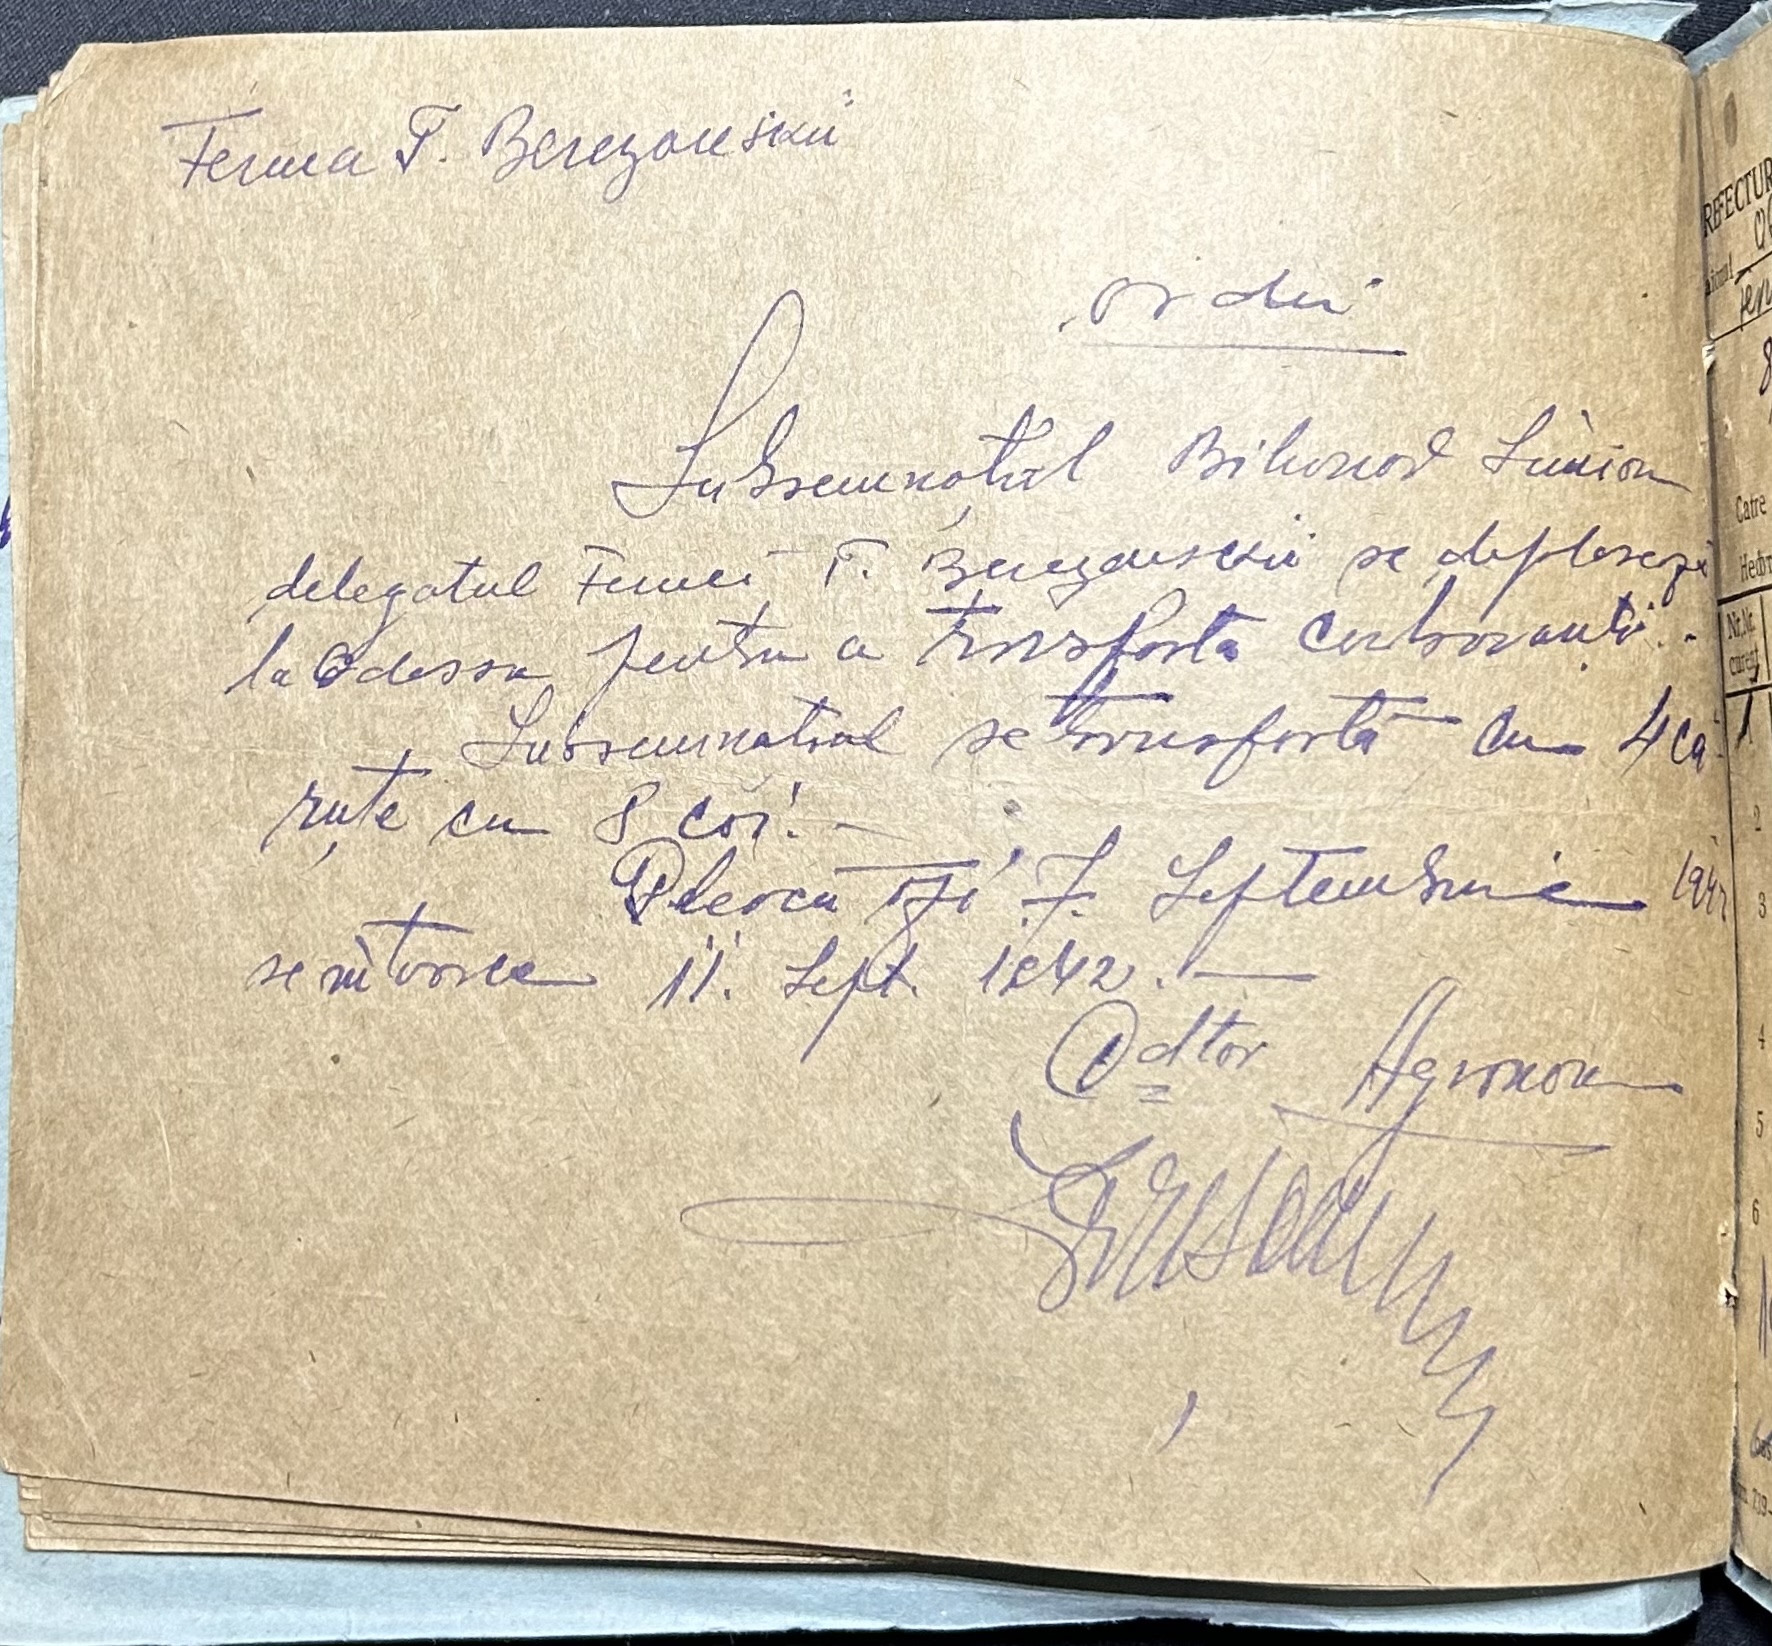 Ferma T. Berezovskii
Ordin
Subsemnatul Simion
delegatul Fermei T. Berezovskii se deplasează
la Odessa pentru a transporta carburanți. -
Subsemnatul se transportă cu 4 că-
ruțe cu 8 cai. -
Pleacă azi 7. Septembrie 1942
se întoarce 11. Sept. 1942. —
Agronom
REFECTUR
Catre
Nr.
curent
1
2
3
4
5
6